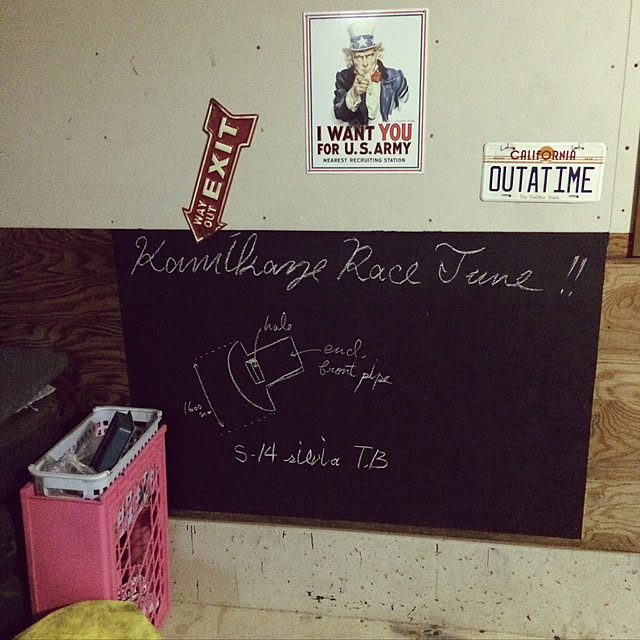 I WANT YOU
FOR U.S. ARMY
NEAREST RECRUITING STATION
WAY OUT
EXIT
CALIFORNIA
OUTATIME
The Golden State
Kamikaze Race Tune !!
hole
end,
front pipe
S-14 silvia T.B